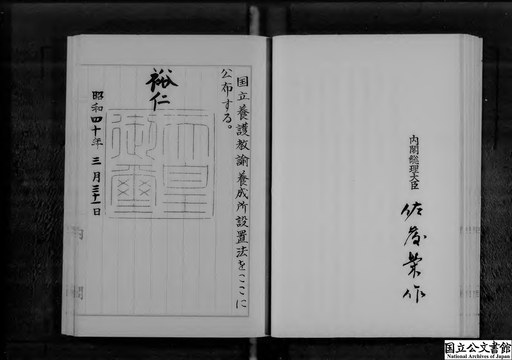 国立養護教諭養成所設置法をここに
公布する。
裕仁
天皇
御璽
昭和四十年三月三十一日
内閣総理大臣
佐藤榮作
国立公文書館
National Archives of Japan